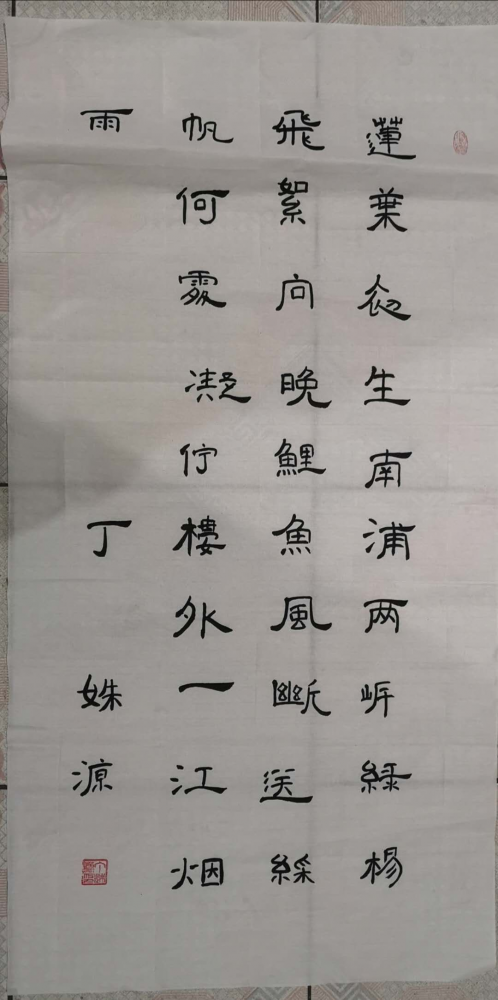 蓮葉初生南浦两岸綠楊
飛絮向晚鯉魚風斷送綵
帆何處凝佇樓外一江烟
雨 丁 姝源